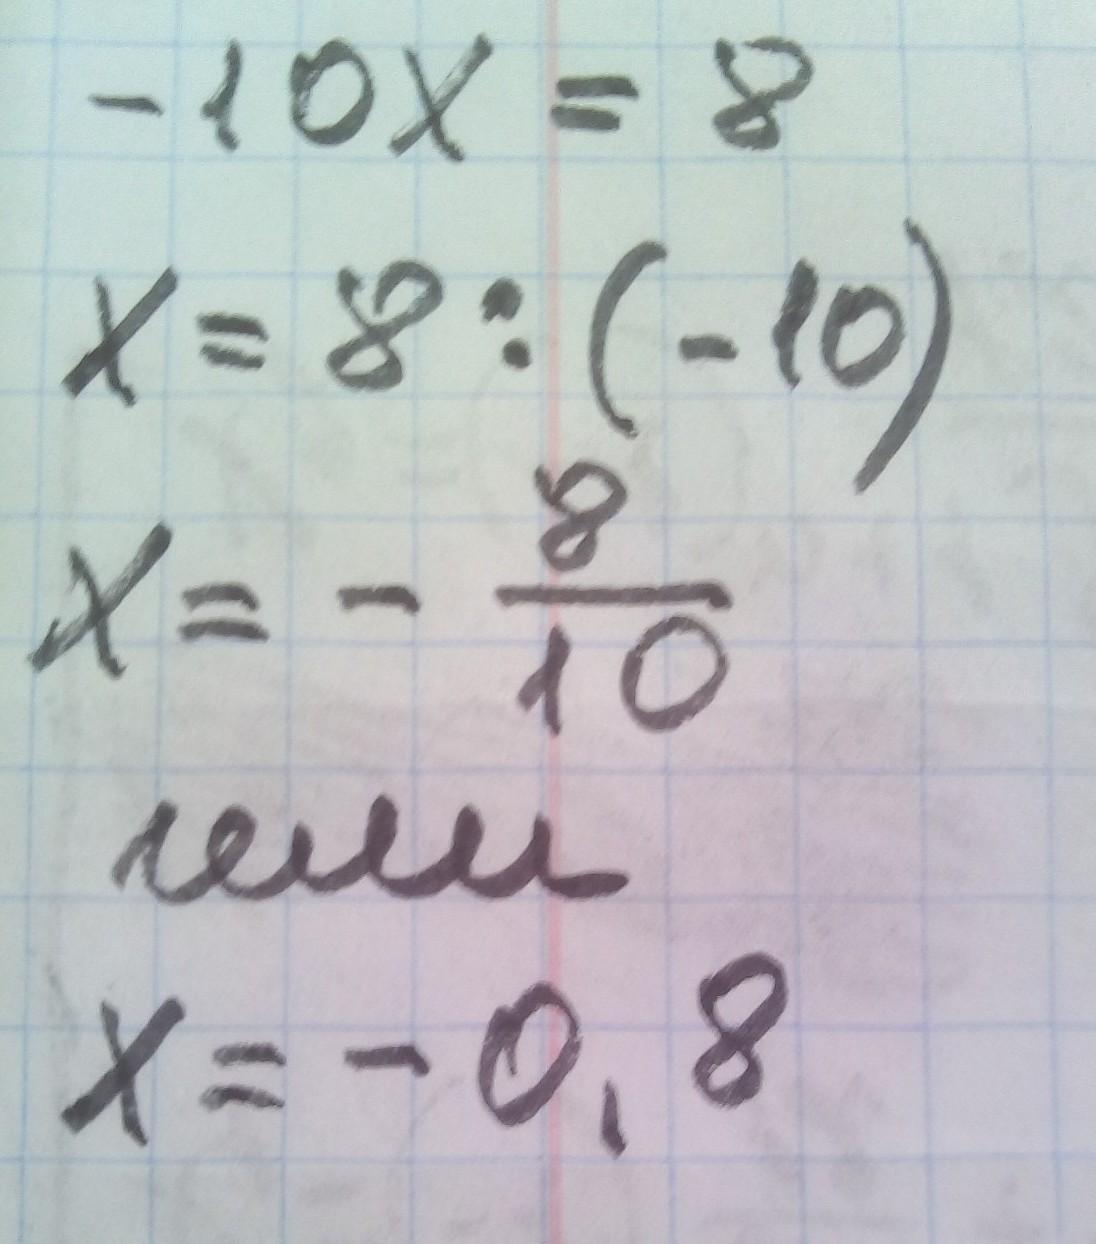 -10x = 8
x = 8 : (-10)
x = - 8/10
или
x = - 0,8